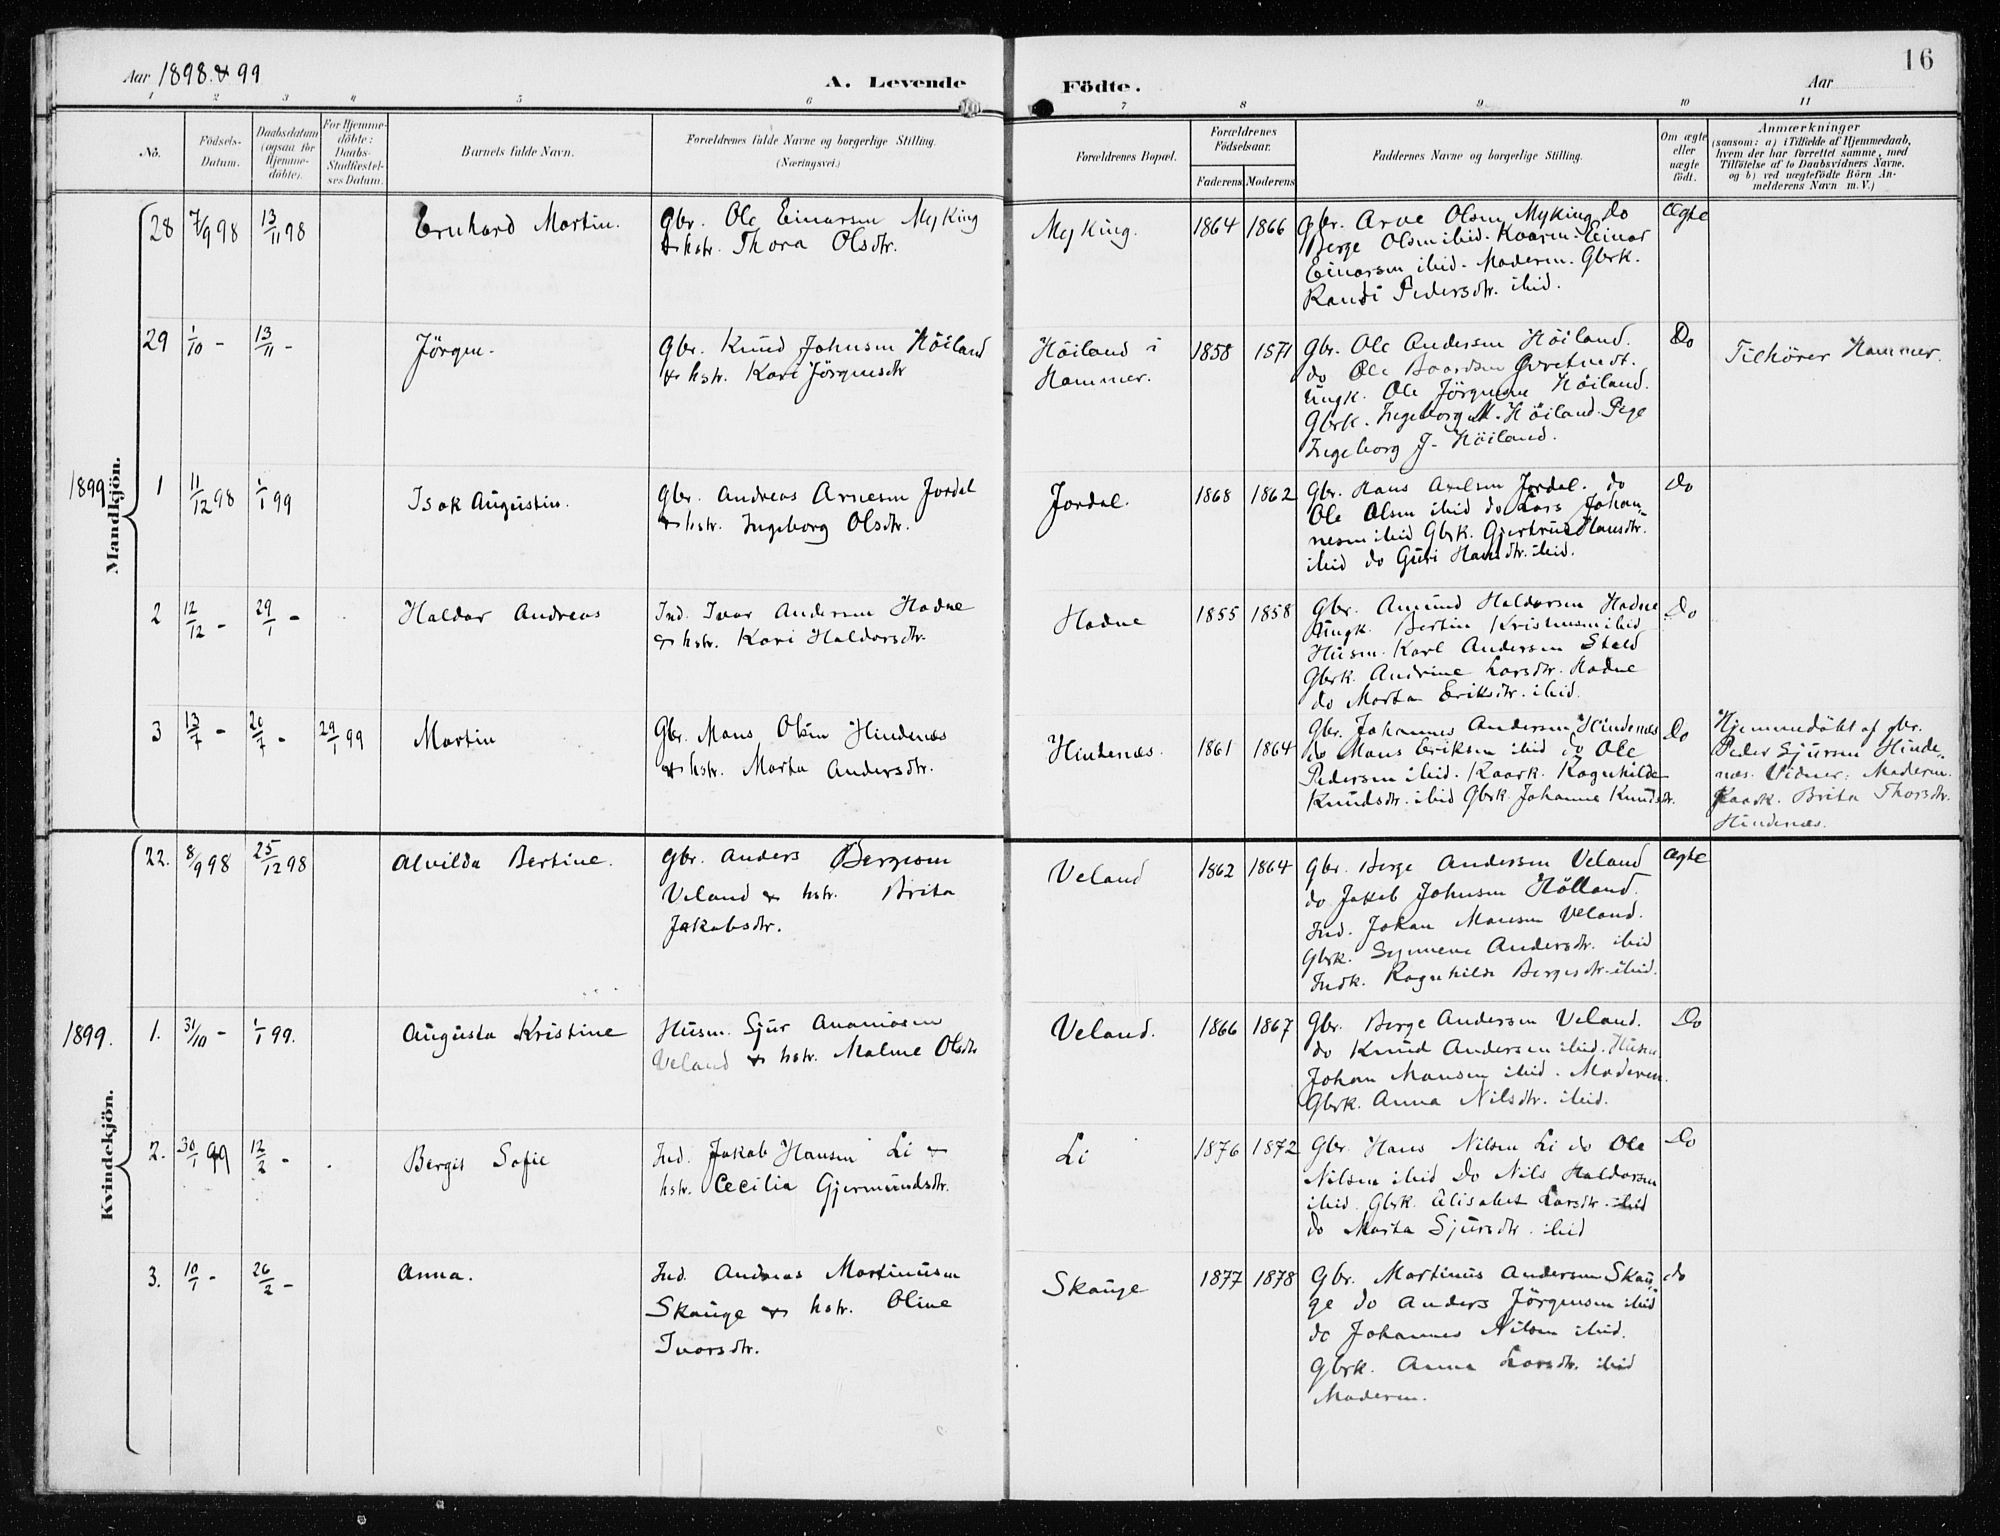 Aar 1898 & 99
A. Levende
Födte.
Aar
16
1 2 3 4 5 6 7 8 9 10 11
No.
Födsels-
Datum.
Daabsdatum
(ogsaa for
Hjemme-
döbte).
For Hjemme-
döbte:
Daabs-
Stadfæstel-
ses Datum.
Barnets fulde Navn.
Forældrenes fulde Navne og borgerlige Stilling.
(Næringsvei.)
Forældrenes Bopæl.
Forældrenes
Födselsaar.
Faderens Moderens
Faddernes Navne og borgerlige Stilling.
Om ægte
eller
uægte
födt.
Anmærkninger
(saasom: a) i Tilfælde af Hjemmedaab,
hvem der har forrettet samme, med
Tilföielse af to Daabsvidners Navne,
og b) ved uægtefödte Börn An-
melderens Navn m. V.)
Mandkjön.
28 7/9 98 13/11 98
Ernhard Martin.
Gbr. Ole Einarsen Myking
& hstr. Thora Olsdtr.
Myking.
1864 1866
Gbr. Arve Olsen Myking do
Berge Olsen ibid. Kaarm. Einar
Einarsen ibid. Moderen. Gbrk.
Randi Pedersdtr. ibid.
Ægte
29 1/10 - 13/11 -
Jörgen.
Gbr. Knud Johnsen Höiland
& hstr. Kari Jörgensdtr
Höiland i
Hammer.
1858 1871
Gbr. Ole Andersen Höiland.
do Ole Baardsen Övretvedt.
Ungk. Ole Jörgensen Höiland.
Gbrk. Ingeborg M. Höiland. Pige
Ingeborg J. Höiland.
Do
Tilhörer Hammer.
1899
1 11/12 98 1/1 99
Isak Augustin.
Gbr. Andreas Arnesen Jordal
& hstr. Ingeborg Olsdtr.
Jordal.
1868 1862
Gbr. Hans Axelsen Jordal. do
Ole Olsen ibid do Lars Johan-
nesen ibid Gbrk. Gjertrud Hansdtr.
ibid do Guri Hansdtr. ibid.
Do
2 12/12 - 29/1 -
Haldor Andreas
Ind. Ivar Andersen Hodne
& hstr. Kari Haldorsdtr.
Hodne
1855 1858
Gbr. Amund Haldorsen Hodne
Ungk. Bertin Kristensen ibid
Husm. Karl Andersen Steld
Gbrk. Andrine Larsdtr. Hodne
do Marta Eriksdtr. ibid.
Do
3 13/7 - 20/7 - 29/1 99
Martin
Gbr. Mons Olsen Hindenæs
& hstr. Marta Andersdtr.
Hindenæs.
1861 1864
Gbr. Johannes Andersen Hindenæs
do Mons Eriksen ibid do Ole
Pedersen ibid. Kaark. Ragnhilde
Knudsdtr. ibid Gbrk. Johanne Knudsdtr.
Do
Hjemmedöbt af gbr.
Peder Sjursen Hinde-
næs. Vidner: Moderen.
Kaark. Brita Thorsdtr.
Hindenæs.
Kvindekjön.
22. 8/9 98 25/12 98
Alvilda Bertine.
Gbr. Anders Bergesen
Veland & hstr. Brita
Jakobsdtr.
Veland
1862 1864
Gbr. Berge Andersen Veland
do Jakob Johnsen Hölland.
Ind. Johan Monsen Veland.
Gbrk. Synneve Andersdtr. ibid
Indk. Ragnhilde Bergesdtr. ibid.
Ægte
1899.
1. 31/10 - 1/1 99.
Augusta Kristine
Husm. Sjur Ananiasen
Veland & hstr. Malene Olsdtr
Veland.
1866 1867
Gbr. Berge Andersen Veland.
do Knud Andersen ibid. Husm.
Johan Monsen ibid. Moderen.
Gbrk. Anna Nilsdtr. ibid.
Do
2. 30/1 99 12/2 -
Bergit Sofie
Ind. Jakob Hansen Li &
hstr. Cecilia Gjermundsdtr.
Li
1876 1872
Gbr. Hans Nilsen Li do Ole
Nilsen ibid Do Nils Haldorsen
ibid. Gbrk. Elisabet Larsdtr. ibid
do Marta Sjursdtr. ibid
Do
3. 10/1 - 26/2 -
Anna.
Ind. Andreas Martinusen
Skauge & hstr. Oline
Ivarsdtr.
Skauge
1877 1878
Gbr. Martinus Andersen Skau-
ge do Anders Jörgensen ibid
do Johannes Nilsen ibid.
Gbrk. Anna Larsdtr. ibid
Moderen.
do